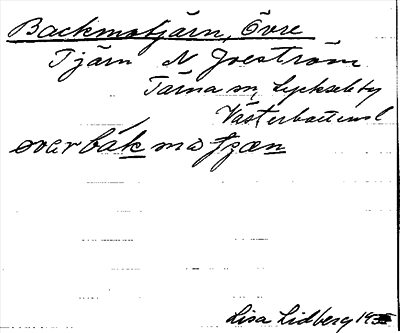 Backmotjärn, Övre
Tjärn N Joeström
Tärna sn, Lycksele by
Västerbottens l
överbákmotjæn
Lisa Lidberg 19